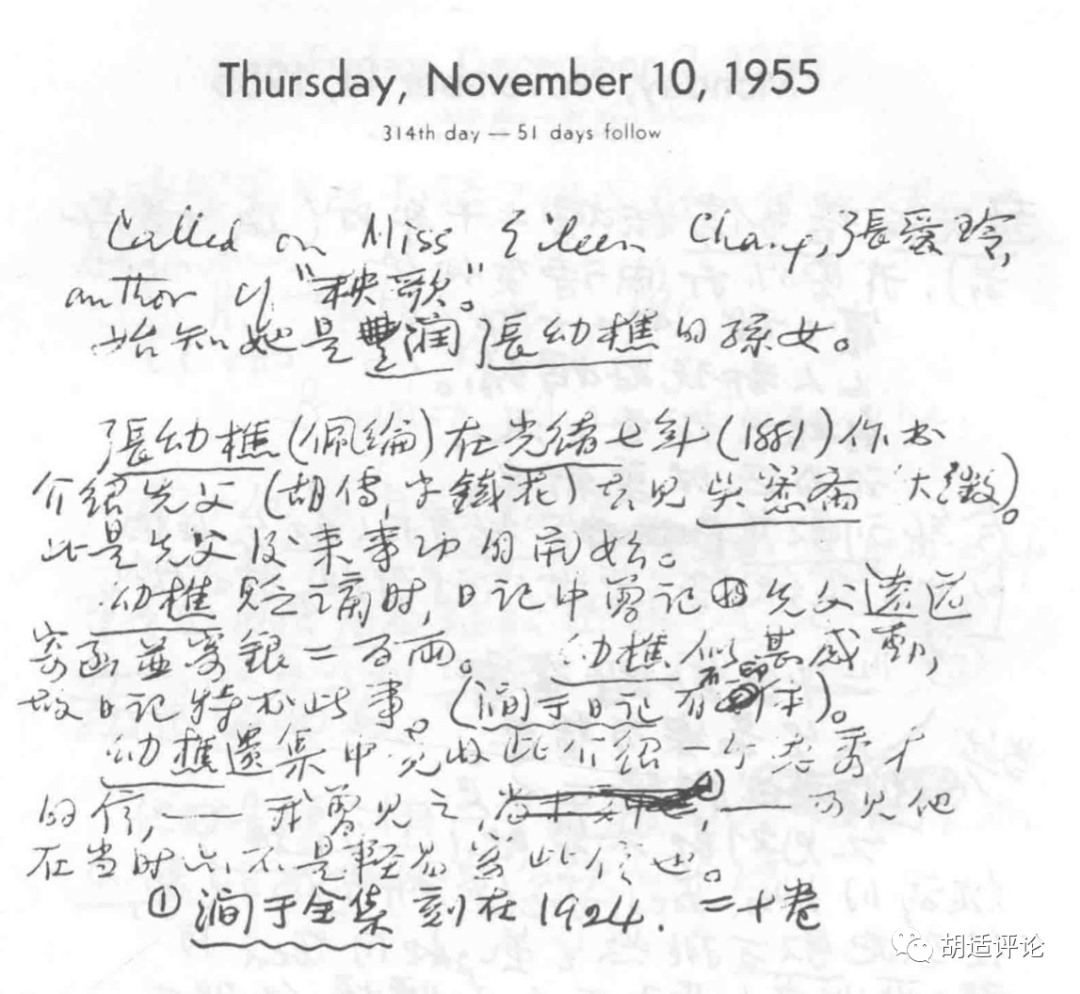 Thursday, November 10, 1955
314th day — 51 days follow
Called on Miss Eileen Chang, 張爱玲,
author of "秧歌"。
始知她是豐润張幼樵的孫女。
張幼樵(佩綸)在光绪七年(1881)作书
介紹先父(胡傳,字鐵花)去见吴愙斋(大澂)。
此是先父後来事功的開始。
幼樵贬谪时,日记中曾记先父遠道
寄函並寄銀二百兩。幼樵似甚感動,
故日记特书此事。(涧于日记有石印本)。
幼樵遺集中,只收此介紹一个老秀才
的信,——我曾见之,①——可见他
在当时亦不是輕易寫此信也。
①涧于全集刻在1924.二十卷
胡适评论